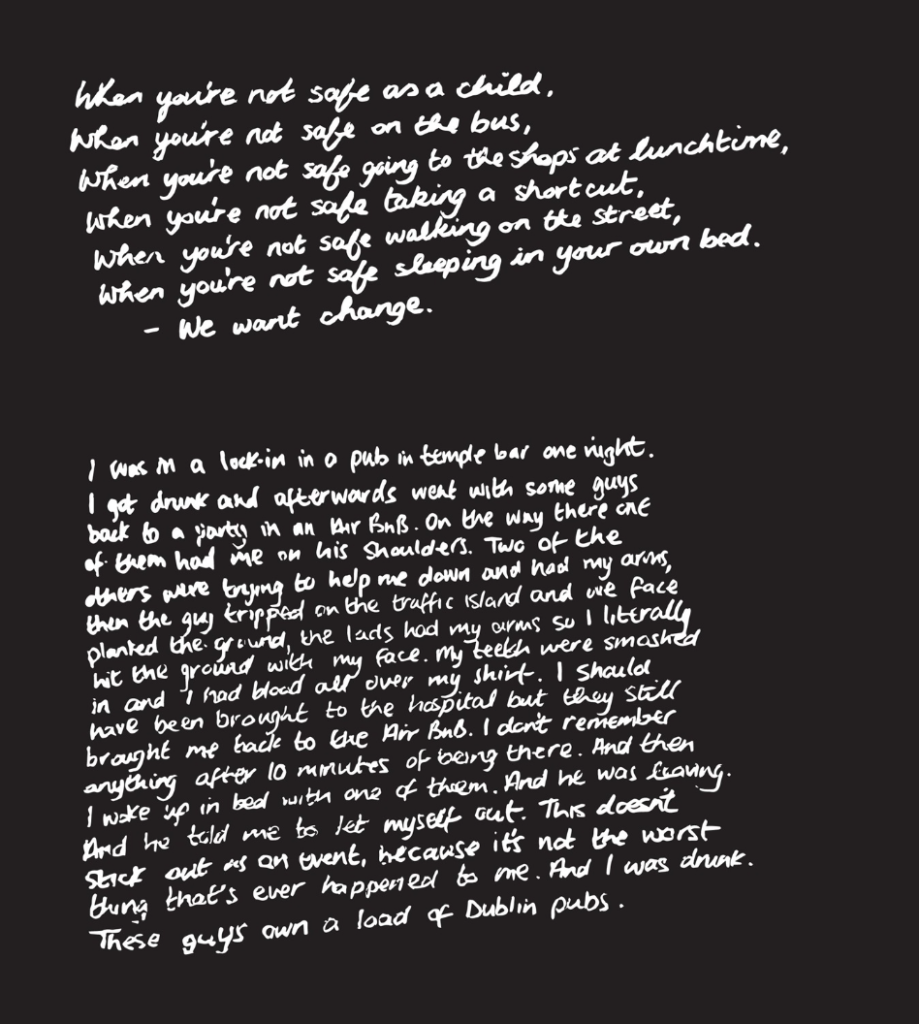 When you're not safe as a child.
When you're not safe on the bus,
When you're not safe going to the shops at lunchtime,
When you're not safe taking a shortcut.
When you're not safe walking on the street,
When you're not safe sleeping in your own bed.
- We want change.
I was in a lock-in in a pub in temple bar one night.
I got drunk and afterwards went with some guys
back to a party in an Air BnB. On the way there one
of them had me on his shoulders. Two of the
others were trying to help me down and had my arms,
then the guy tripped on the traffic island and we face
planted the ground, the lads had my arms so I litterally
hit the ground with my face. My teeth were smashed
in and I had blood all over my shirt. I should
have been brought to the hospital but they still
brought me back to the Air BnB. I don't remember
anything after 10 minutes of being there. And then
I woke up in bed with one of them. And he was leaving.
And he told me to let myself out. This doesn't
stick out as an event, because it's not the worst
thing that's ever happened to me. And I was drunk.
These guys own a load of Dublin pubs.